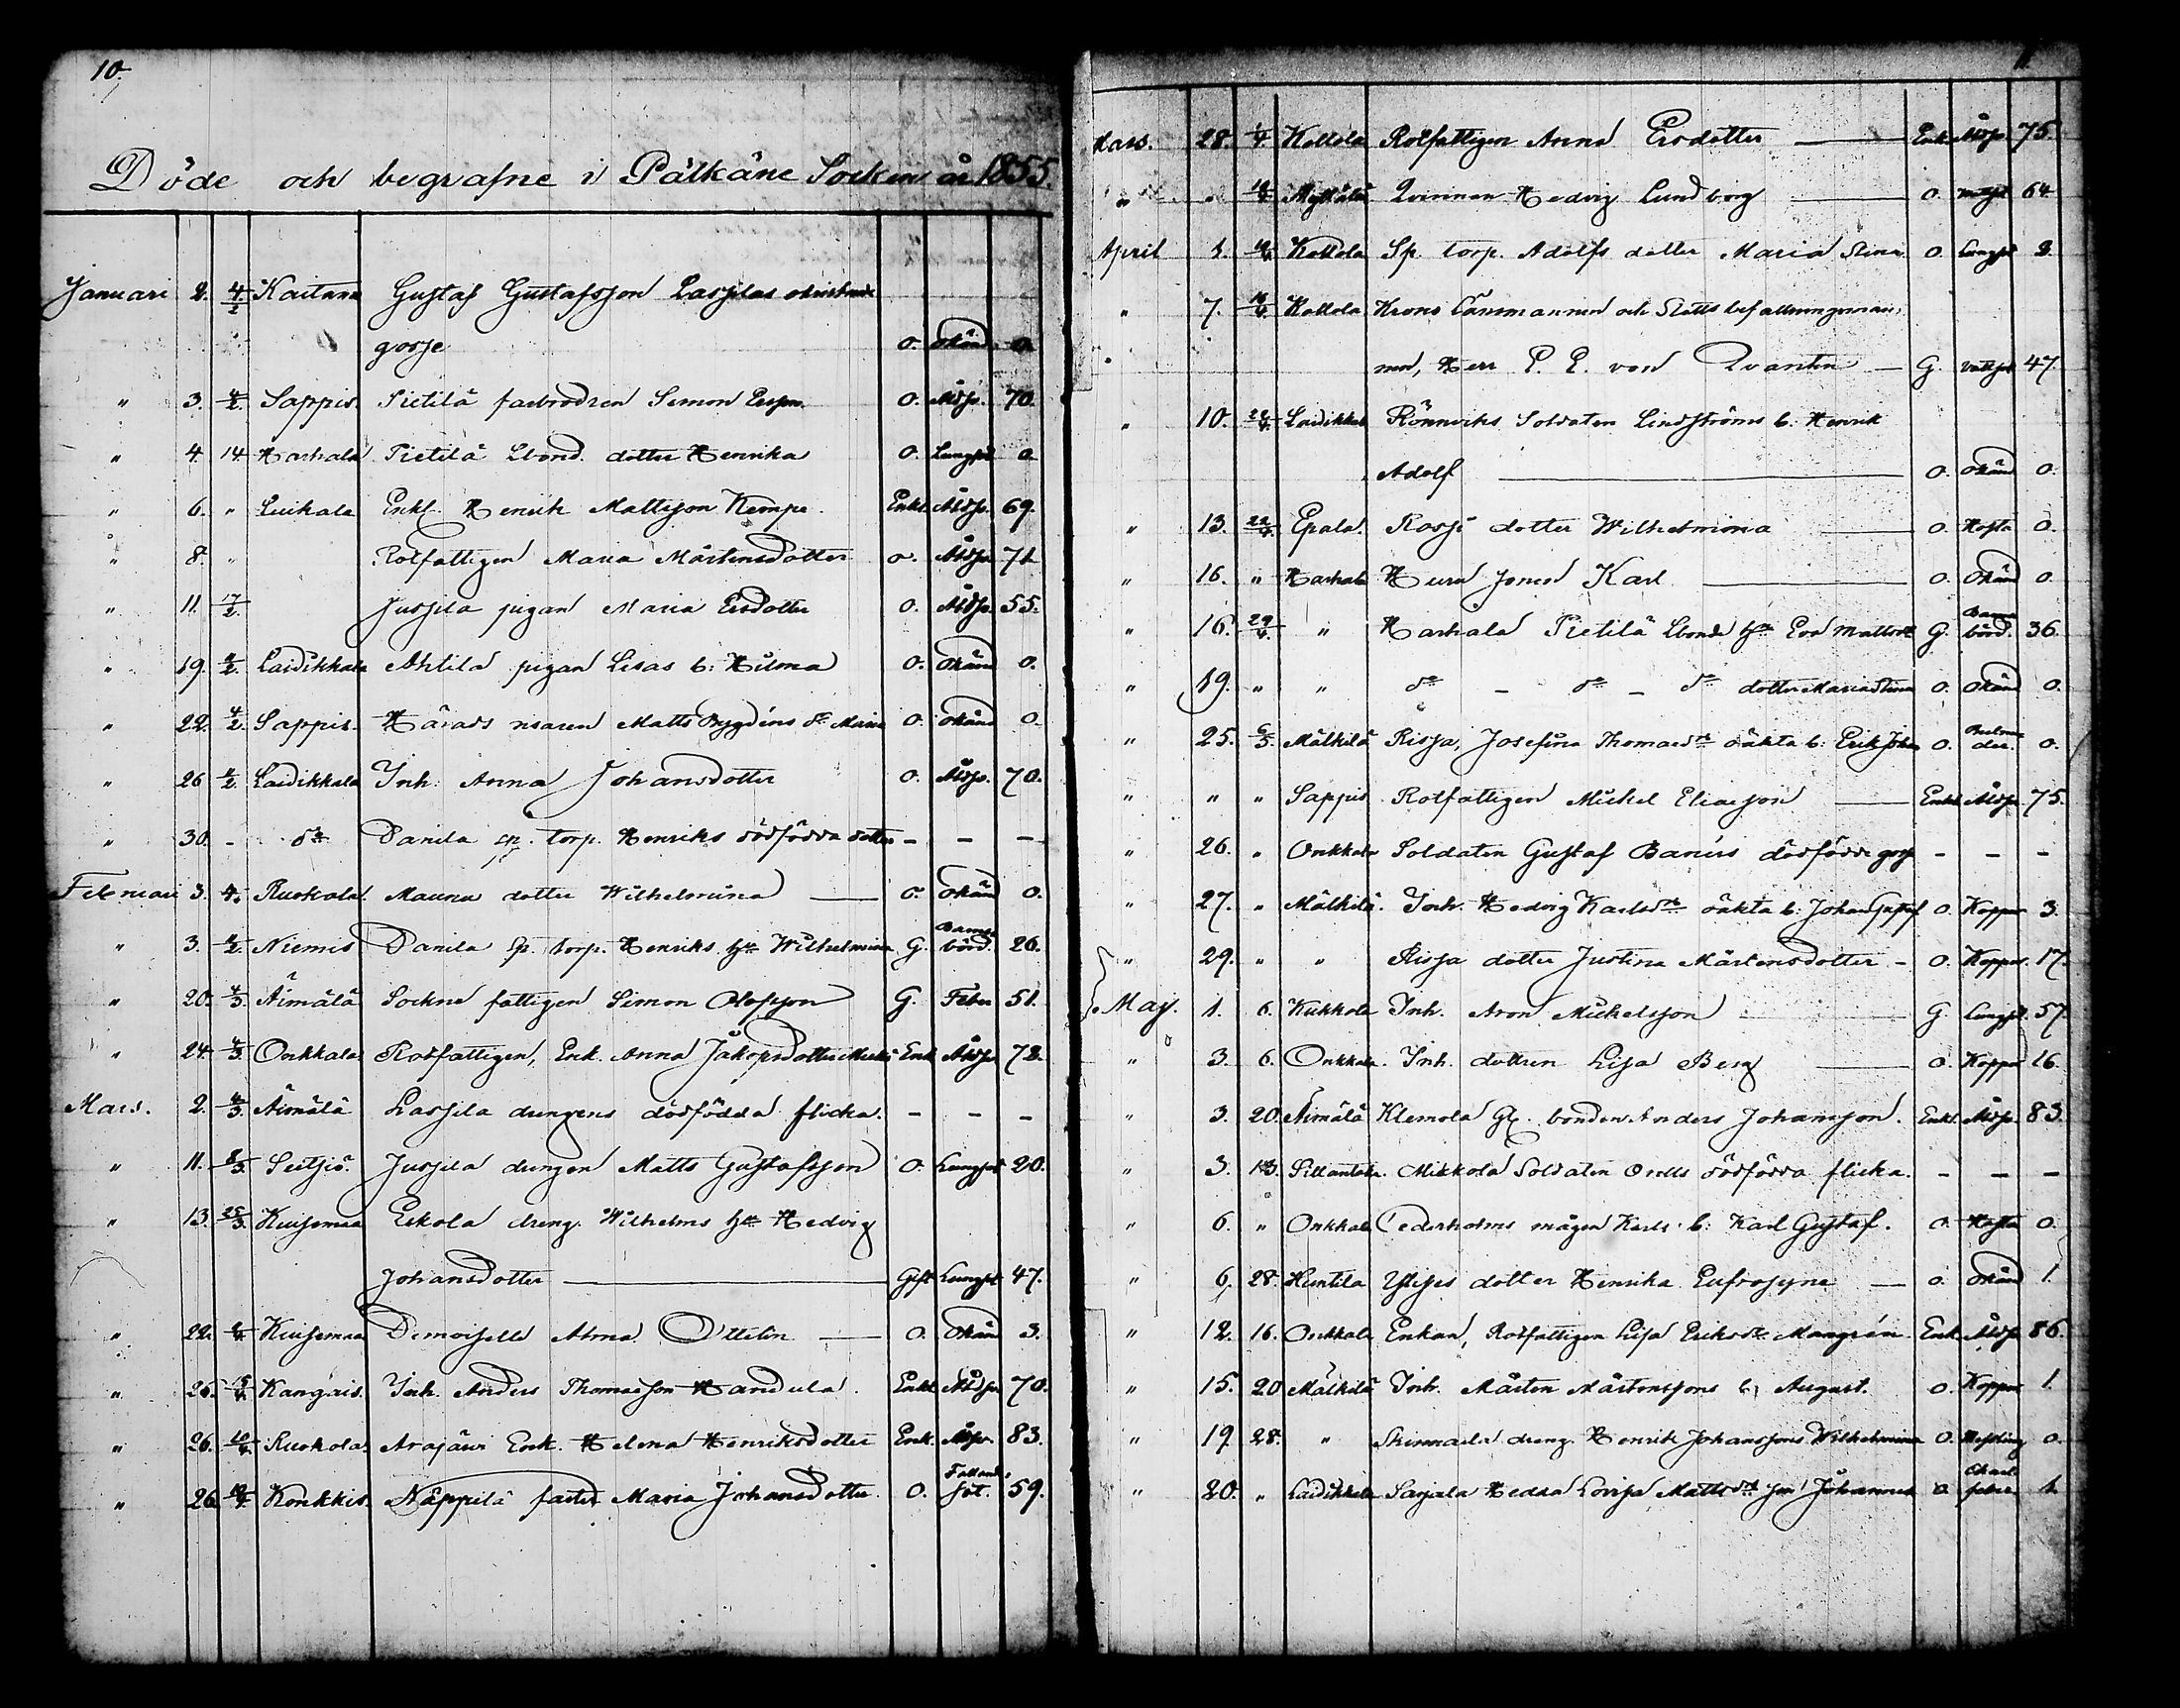 10.
Döde och begrafne i Pälkäne Socken år 1855.
Januari 2. 4/2 Kaitama Gustaf Gustafsson Lassilas okristnade
gosse o. okänd o.
" 3. 4/2. Sappis. Pietilä farbrodren Simon Ersson. o. Åldjr. 70.
" 4. 14. Harhala Pietilä Lbond. dotter Henrika o. Lungsot o.
" 6. " Luikala Enkl. Henrik Mattsson Kempe. Enkl. Åldjr. 69.
" 8. " Rotfattigen Maria Mårtensdotter o. Åldjr. 71.
" 11. 17/2. Jussila pigan Maria Ersdotter o. Åldjr. 55.
" 19. 4/2. Laidikkala Ahlila pigan Lisas b: Hilma o. Okänd o.
" 22. 4/2. Sappis. Härads Matts dr Maria o. okänd o.
" 26 4/2. Laidikkala Inh. Anna Johansdotter o. Åldjr. 70.
" 30. - do Danila sp. torp. Henriks dödfödda dotter - - -
Februari 3. 4. Ruokola. Mauna dotter Wilhelmina o. Okänd o.
" 3. 4/2. Niemis Danila sp. torp. Henriks hu Wilhelmina G. Barnsbörd. 26.
" 20. 4/3. Äimälä Sockne fattigen Simon Olofsson G. Feber 51.
" 24. 4/3. Onkkala Rotfattigen, Enk. Anna Jakopsdotter Enk. Åldjr 72.
Mars. 2. 4/3. Äimälä Lassila drengens dödfödda flicka. - - -
" 11. 8/3. Seitsis. Jussila drengen Matts Gustafsson o. Lungsot 20.
" 13. 25/3. Kuisemaa Eskola dreng. Wilhelms hu Hedvig
Johansdotter Gift Lungsot 47.
" 22. Kuisemaa Demoiselle Alma Ottelin o. Okänd 3.
" 26. 15/4 Kangais. Inh. Anders Thomasson Handula. Enkl Åldjr. 70.
" 26. 10/4. Ruokola. Arajärvi Enk. Helena Henriksdotter Enk. Åldjr. 83.
" 26 Konkkis. Näppilä faster Maria Johansdotter. o. Fallandsot. 59.
11.
Mars. 28. 1/4. Kollola Rotfattigen Anna Ersdotter Enk. Åldjr. 75.
" " Myttälä Qvinnan Hedvig Lundborg o. 64.
April 1. Kollola Sp. torp. Adolfs dotter Maria Stina o. Lungsot 2.
" 7. Kollola Krono Länsmannen och Slotts befallningsman-
nen, Herr P. E. von Qvanten G. Vattsot 47.
" 10. 22/4. Laidikkala Rönnviks Soldaten Lindströms b: Henrik
Adolf o. Okänd o.
" 13. 22/4. Epala. Rossi dotter Wilhelmina o. Hosta o.
" 16. " Harhala Karl o. Okänd o.
" 16. 29/4. " Harhala Pietilä Lbonde hu Eva Mattsdr G. Barnsbörd. 36.
" 19. " " do - do - do dotter Maria Stina o. Okänd o.
" 25. 6/5. Mälkilä Rissa, Josefina Thomasdr oäkta b. Erik Johan o. o.
" " " Sappis Rotfattigen Mickel Eliasson Enkl. Åldjr. 75.
" 26. " Onkkala Soldaten Gustaf Baners dödfödde gosse - - -
" 27. " Mälkilä. Inh. Hedvig Karlsdr oäkta b. Johan Gustaf o. Koppor 3.
" 29. " " Rissa dotter Justina Mårtensdotter - o. Koppor. 17.
Maj. 1. 6. Kukkola Inh. Aron Mickelsson G. Lungsot. 57.
" 3. 6. Onkkala. Inh. dottren Lisa Berg o. Koppor 26.
" 3. 20. Äimälä Klemola Gl. bonden Anders Johansson. Enkl. Åldjr. 83.
" 3. 13. Mikkola Soldaten Orells dödfödda flicka. - - -
" 6. " Onkkala Cederholms mågen Karls b: Karl Gustaf. o. Hosta o.
" 6. 28. Huntila dotter Henrika Eufrosyne o. Okänd 1.
" 12. 16. Onkkala Enkan, Rotfattigen Lisa Eriksdr Mangrén. Enk. Åldjr. 86.
" 15. 20 Mälkilä Inh. Mårten Mårtensons b, August. o. Koppor 1.
" 19. 28. " dreng. Henrik Johanssons Wilhelmina o. Messling o.
" 20. " Laidikkala Sarjala Hedda Lovisa Mattsdr son Johannes o. 1.